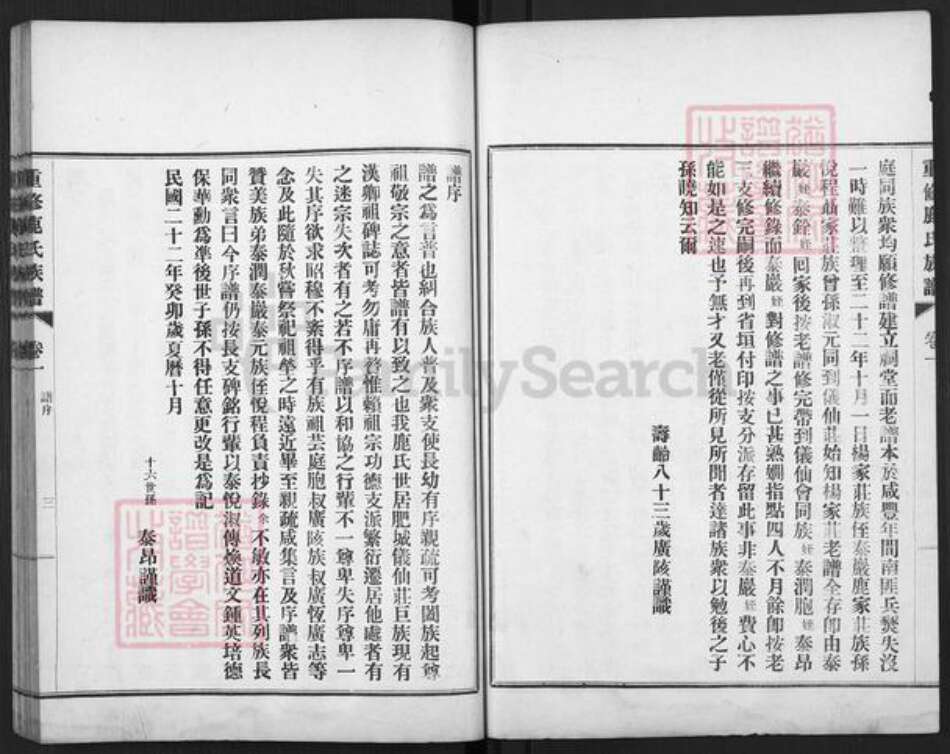 庭同族衆均願修譜建立祠堂而老譜本於咸豐年間南匪兵燹失沒
一時難以整理至二十二年十月一日楊家莊族侄泰巖鹿家莊族孫
悅程茹家莊族曾孫淑元同到儀仙莊始知楊家莊老譜全存卽由泰
巖姪泰銓姪回家後按老譜修完帶到儀仙會同族姪泰潤胞姪泰昂
繼續修錄面泰巖姪對修譜之事已甚熟嫻指點四人不月餘卽按老
三支修完嗣後再到省垣付印按支分派存留此事非泰巖姪費心不
能如是之速也予無才又老僅從所見所聞者達諸族衆以勉後之子
孫曉知云爾
壽齡八十三歲廣陔謹識
重修鹿氏族譜
卷一
譜序
譜之爲言普也糾合族人普及衆支使長幼有序親疏可考闔族起尊
祖敬宗之意者皆譜有以致之也我鹿氏世居肥城儀仙莊巨族現有
漢卿祖碑誌可考勿庸再贅惟賴祖宗功德支派繁衍遷居他處者有
之迷宗失次者有之若不序譜以和協之行輩不一尊卑失序尊卑一
失其序欲求昭穆不紊得乎有族祖芸庭胞叔廣陔族叔廣恆廣志等
念及此隨於秋嘗祭祀祖塋之時遠近畢至親疏咸集言及序譜衆皆
贊美族弟泰潤泰巖泰元族侄悅程負責抄錄余不敏亦在其列族長
同衆言曰今序譜仍按長支碑銘行輩以泰悅淑傳煥道文鍾英培德
保華勳爲準後世子孫不得任意更改是爲記
民國二十二年癸卯歲夏曆十月
十六世孫 泰昂謹識
重修鹿氏族譜
卷一
譜序
三
FamilySearch